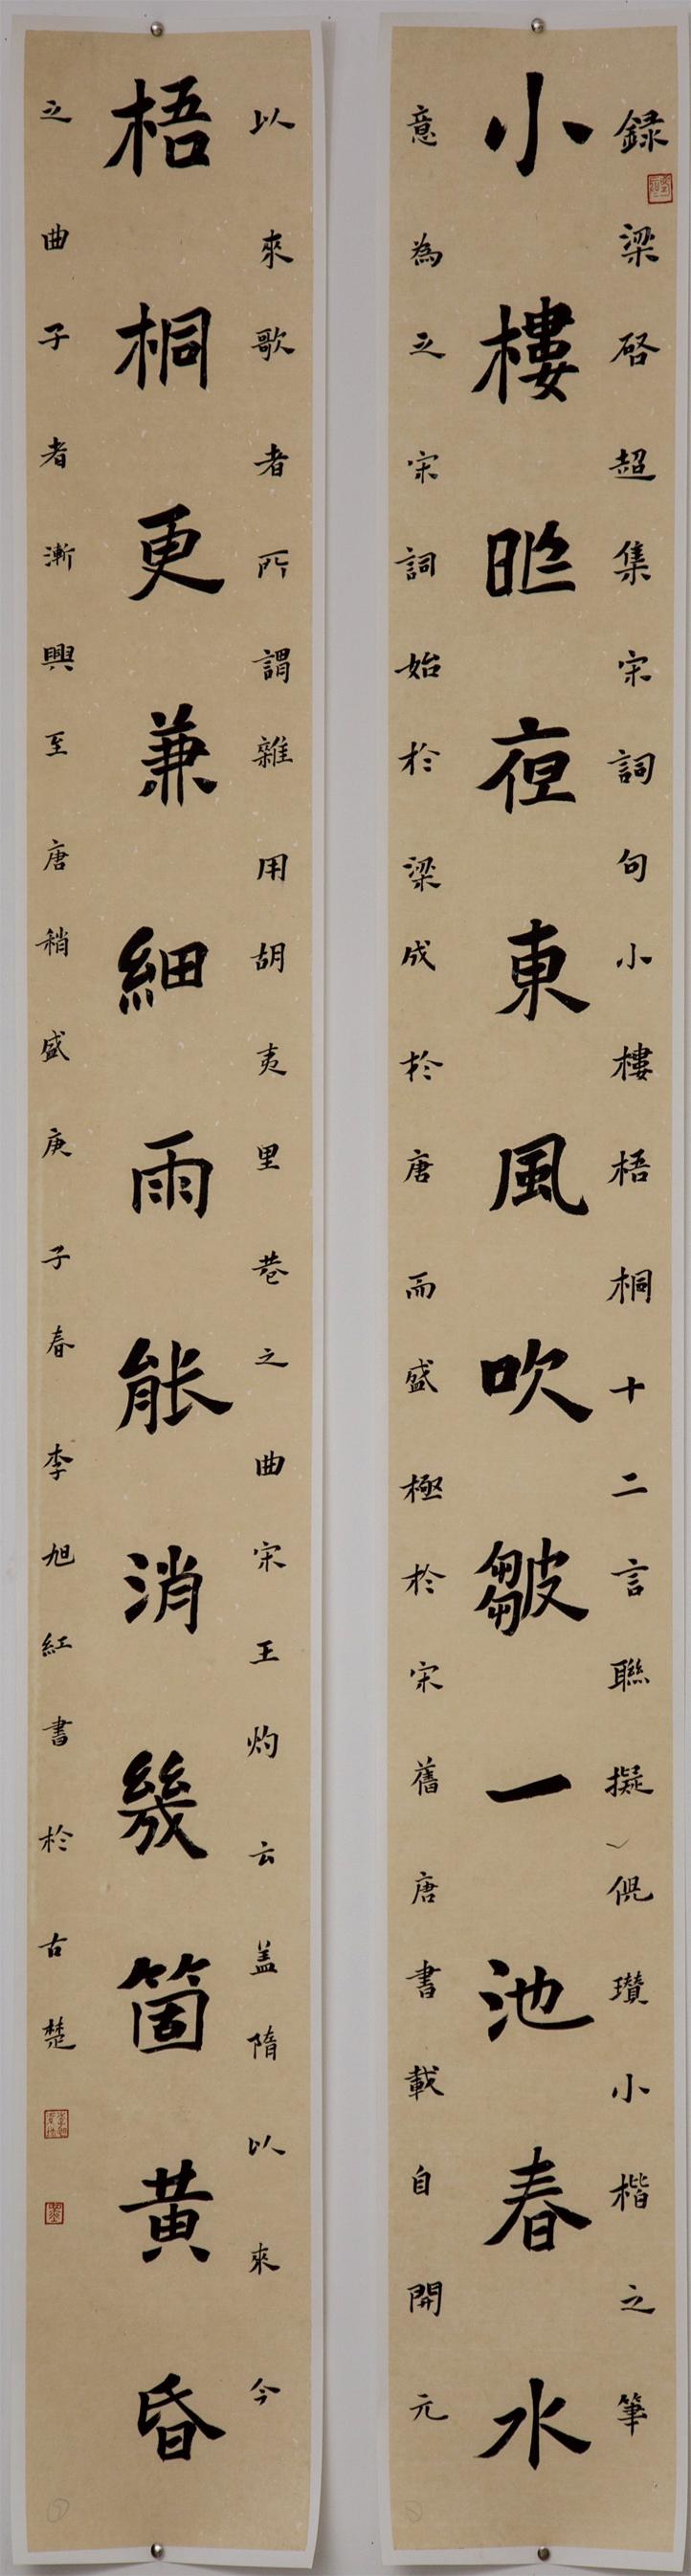 録梁啓超集宋詞句小樓梧桐十二言聯擬倪瓚小楷之筆
小樓昨夜東風吹皺一池春水
意為之宋詞始於梁成於唐而盛極於宋舊唐書載自開元
以來歌者所謂雜用胡夷里巷之曲宋王灼云盖隋以來今
梧桐更兼細雨能消幾箇黃昏
之曲子者漸興至唐稍盛庚子春李旭紅書於古楚